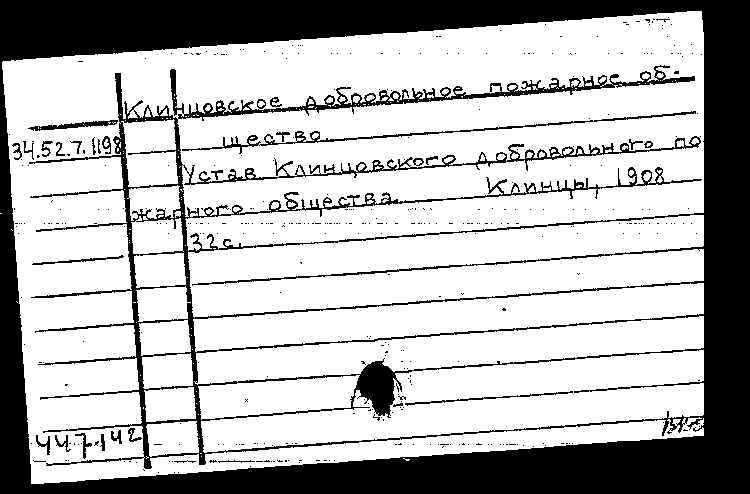 Клинцовское добровольное пожарное об-
34.52.7.1198 щество.
Устав Клинцовского добровольного по
жарного общества. Клинцы, 1908
32 с.
447142